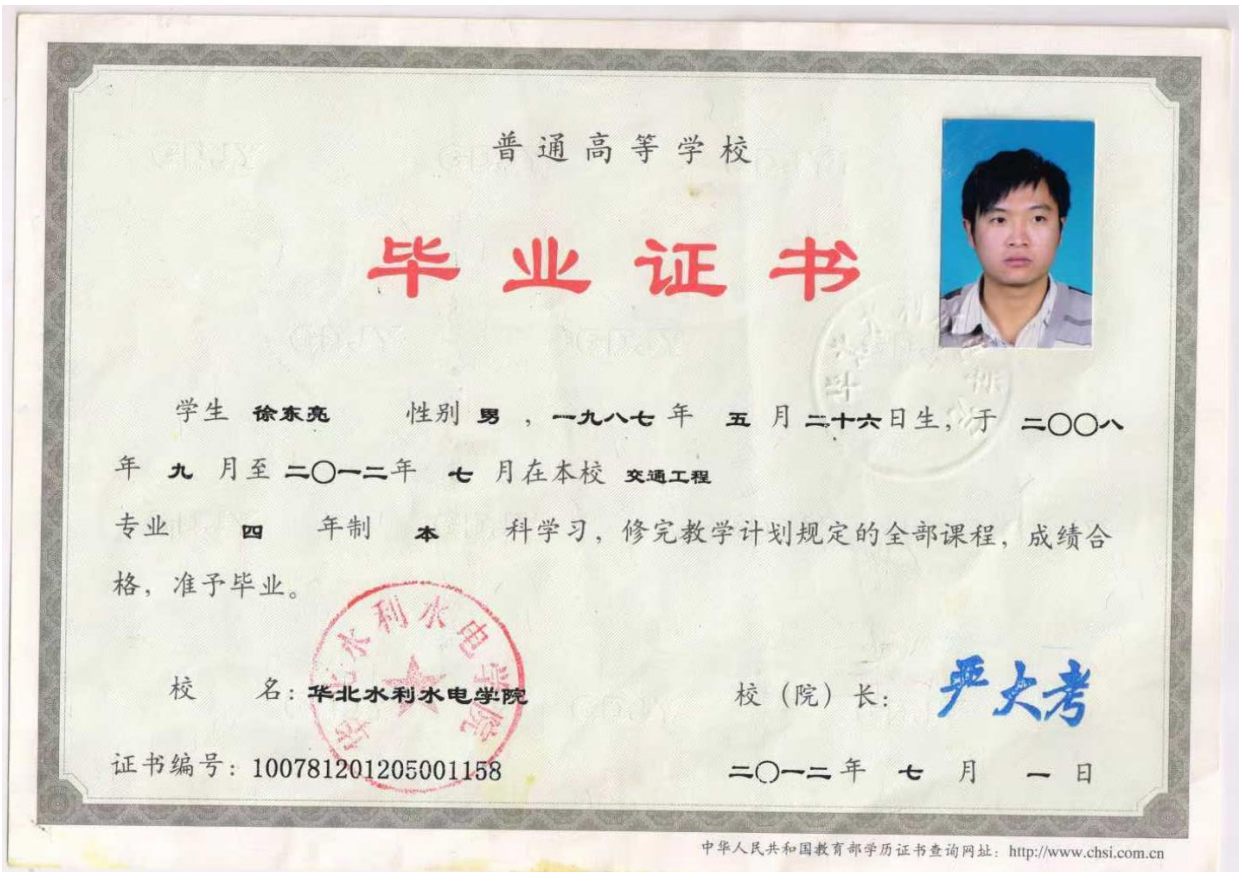 普通高等学校
毕业证书
学生 徐东亮 性别 男 ，一九八七 年 五 月 二十六日生，于 二〇〇八
年 九 月至 二〇一二年 七 月在本校 交通工程
专业 四 年制 本 科学习，修完教学计划规定的全部课程，成绩合
格，准予毕业。
华北水利水电学院
校 名：华北水利水电学院
校（院）长：严大考
证书编号：100781201205001158
二〇一二年 七 月 一 日
中华人民共和国教育部学历证书查询网址：http://www.chsi.com.cn